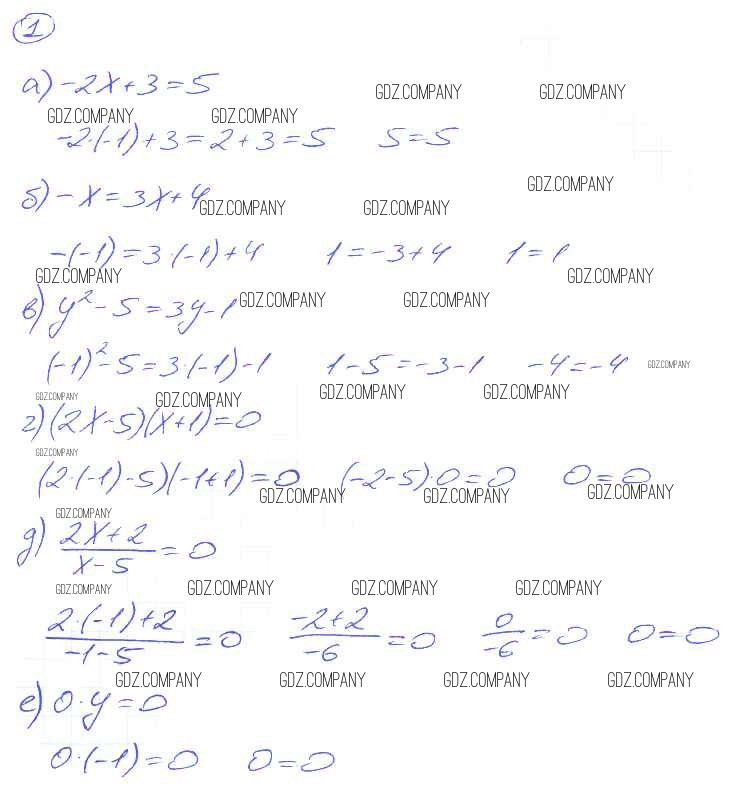 1
а) -2x+3=5
GDZ.COMPANY GDZ.COMPANY
GDZ.COMPANY GDZ.COMPANY
-2·(-1)+3=2+3=5 5=5
GDZ.COMPANY
б) -x=3x+4
GDZ.COMPANY GDZ.COMPANY
-(-1)=3·(-1)+4 1=-3+4 1=1
GDZ.COMPANY GDZ.COMPANY
в) y²-5=3y-1
GDZ.COMPANY GDZ.COMPANY
(-1)²-5=3·(-1)-1 1-5=-3-1 -4=-4
GDZ.COMPANY
GDZ.COMPANY GDZ.COMPANY GDZ.COMPANY GDZ.COMPANY
г) (2x-5)(x+1)=0
GDZ.COMPANY
(2·(-1)-5)(-1+1)=0 (-2-5)·0=0 0=0
GDZ.COMPANY GDZ.COMPANY GDZ.COMPANY
GDZ.COMPANY
д) (2x+2)/(x-5)=0
GDZ.COMPANY GDZ.COMPANY GDZ.COMPANY GDZ.COMPANY
(2·(-1)+2)/(-1-5)=0 (-2+2)/(-6)=0 0/(-6)=0 0=0
GDZ.COMPANY GDZ.COMPANY GDZ.COMPANY GDZ.COMPANY
е) 0·y=0
0·(-1)=0 0=0